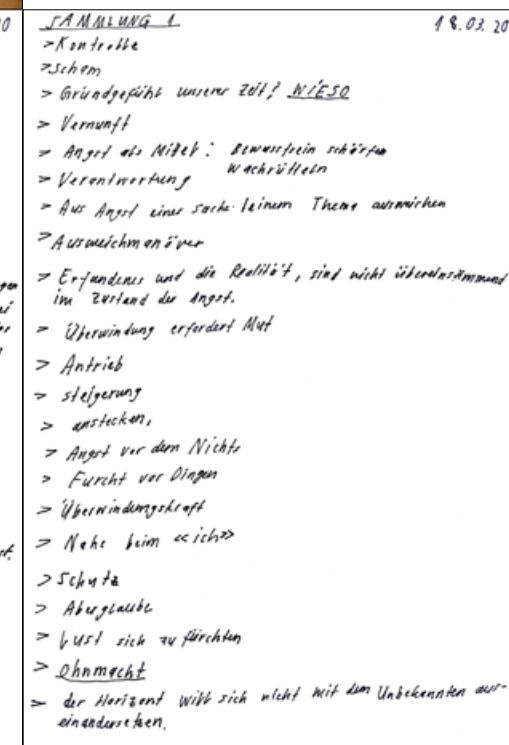 SAMMLUNG 1 18.03.20
> Kontrolle
> Scham
> Gründgefühl unserer Zeit? WIESO
> Vernunft
> Angst als Mittel: Bewusstsein schärfen
wachrütteln
> Verantwortung
> Aus Angst einer Sache / einem Thema ausweichen
> Ausweichmanöver
> Erfundenes und die Realität, sind nicht übereinstimmend
im Zustand der Angst.
> Überwindung erfordert Mut
> Antrieb
> steigerung
> anstecken,
> Angst vor dem Nichts
> Furcht vor Dingen
> Überwindungskraft
> Nahe beim «ich»
> Schutz
> Aberglaube
> Lust sich zu fürchten
> Ohnmacht
> der Horizont will sich nicht mit dem Unbekannten aus-
einandersetzen.